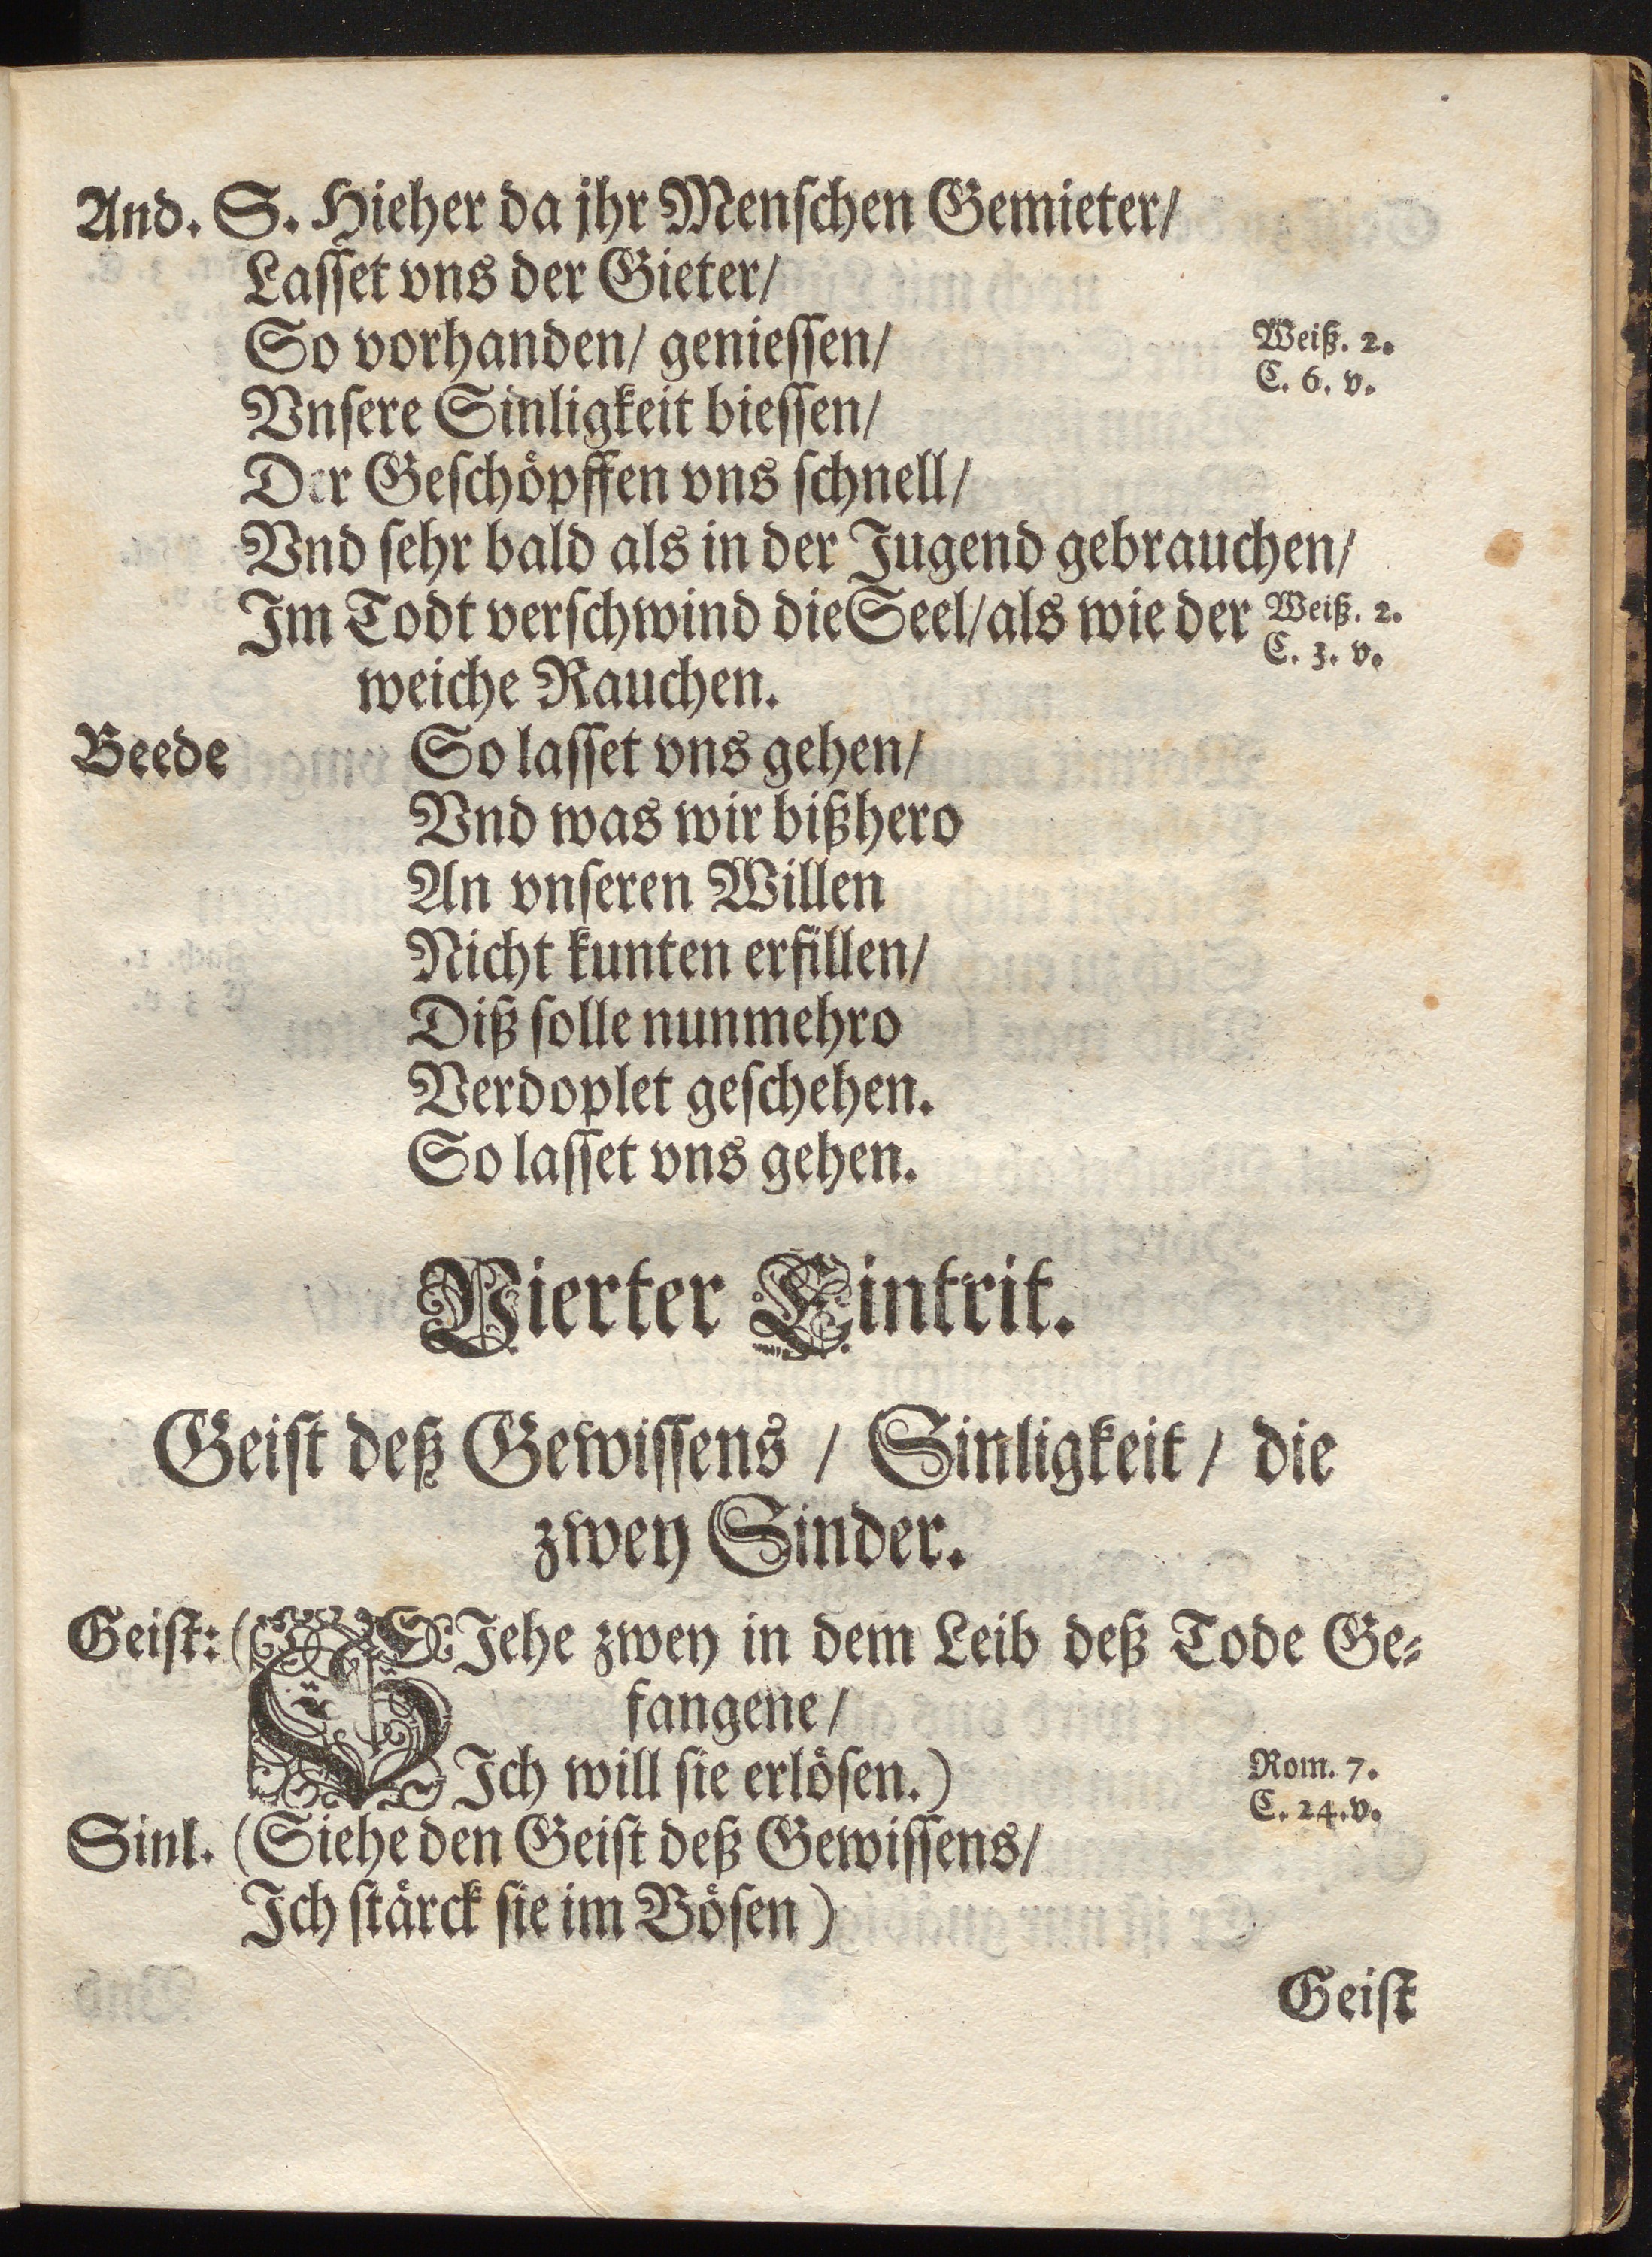 And. S. Hieher da jhr Menſchen Gemieter/
Laſſet vns der Gieter/
So vorhanden/ genieſſen/
Weiß. 2.
C. 6. v.
Vnſere Sinligkeit bieſſen/
Der Geſchöpffen vns ſchnell/
Vnd ſehr bald als in der Jugend gebrauchen/
Im Todt verſchwind die Seel/als wie der
Weiß. 2.
C. 3. v.
weiche Rauchen.
Beede So laſſet vns gehen/
Vnd was wir bißhero
An vnſeren Willen
Nicht kunten erfillen/
Diß ſolle nunmehro
Verdoplet geſchehen.
So laſſet vns gehen.
Vierter Eintrit.
Geiſt deß Gewiſſens / Sinligkeit / die
zwey Sinder.
Geiſt: (SJehe zwey in dem Leib deß Tode Ge-
fangene/
Ich will ſie erlöſen.)
Rom. 7.
C. 24. v.
Sinl. (Siehe den Geiſt deß Gewiſſens/
Ich ſtärck ſie im Böſen)
Geiſt